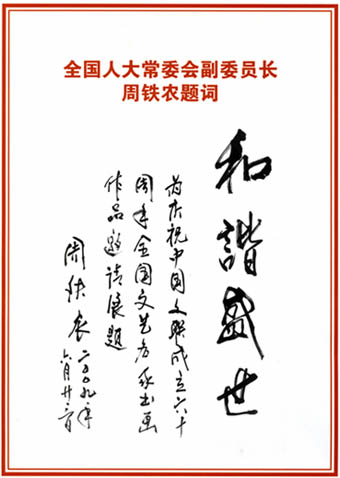 全国人大常委会副委员长
周铁农题词
和諧盛世
为庆祝中国文联成立六十
周年全国文艺名家书画
作品邀请展题
周铁农
二〇〇九年
六月廿日